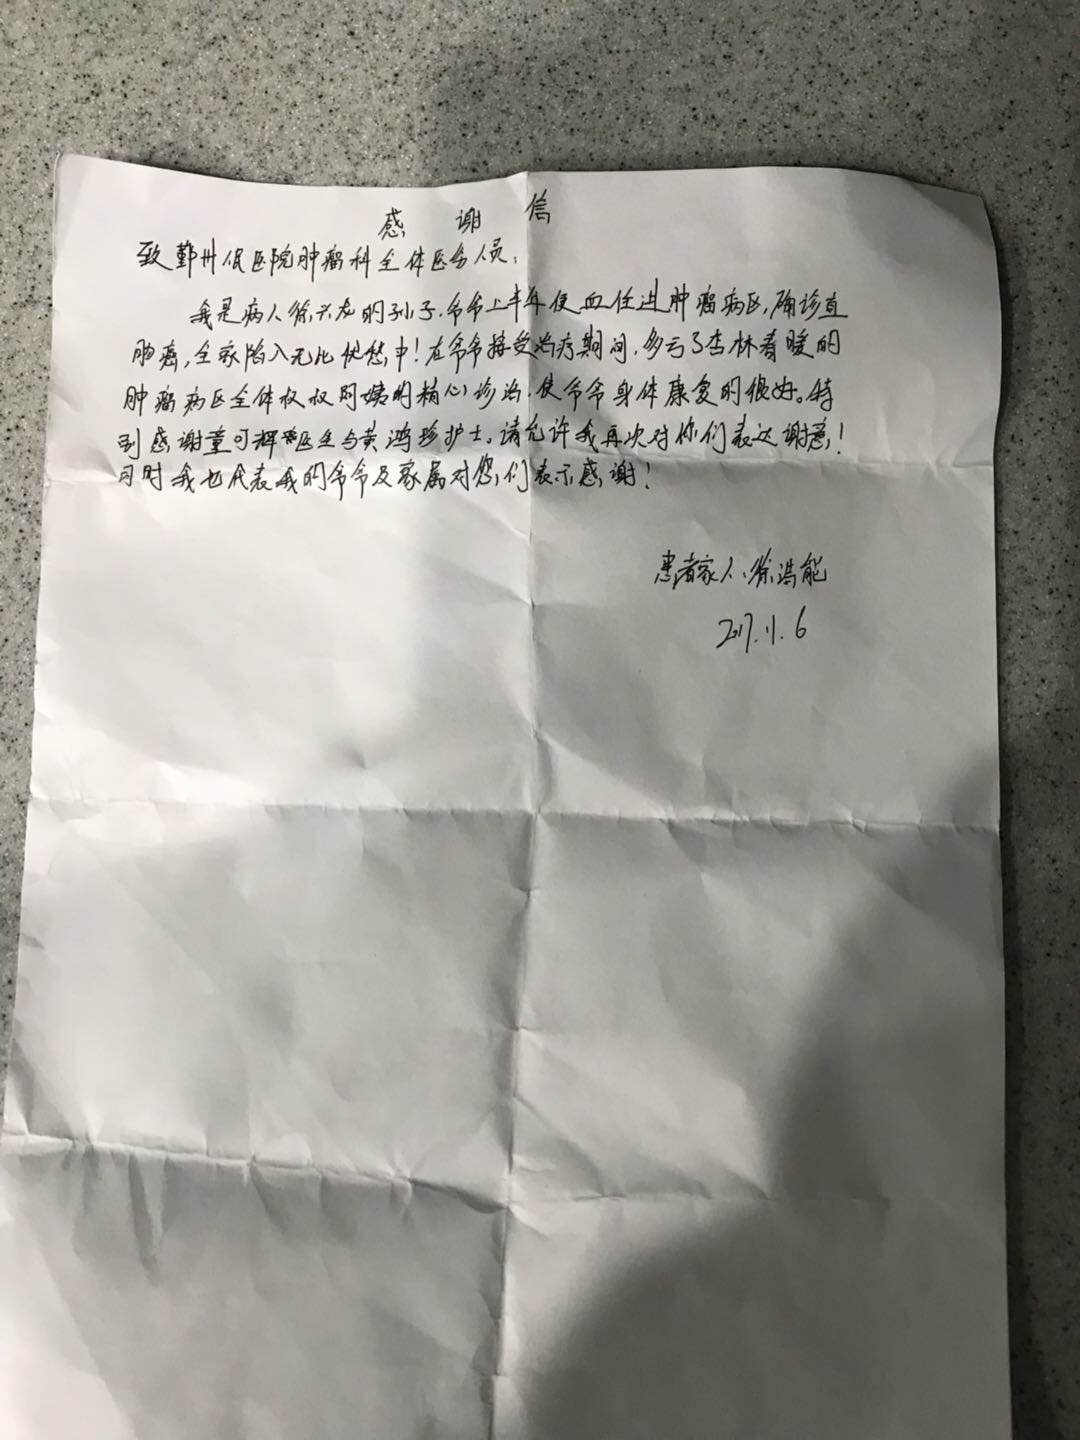 感谢信
致鄞州人民医院肿瘤科全体医务人员:
我是病人徐兴龙的孙子.爷爷上半年便血住进肿瘤病区,确诊直
肠癌,全家陷入无比忧愁中!在爷爷接受治疗期间,多亏了杏林春暖的
肿瘤病区全体叔叔阿姨的精心诊治.使爷爷身体康复的很好。特
别感谢童可辉医生与黄鸿珍护士。请允许我再次对你们表达谢意!
同时我也代表我的爷爷及家属对您们表示感谢!
患者家人:徐鸿能
2017.11.6